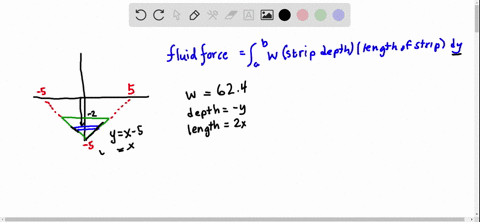 fluid force = ∫ₐᵇ w (strip depth) (length of strip) dy
w = 62.4
depth = -y
length = 2x
-5 5
-2
y = x - 5
-5
= x